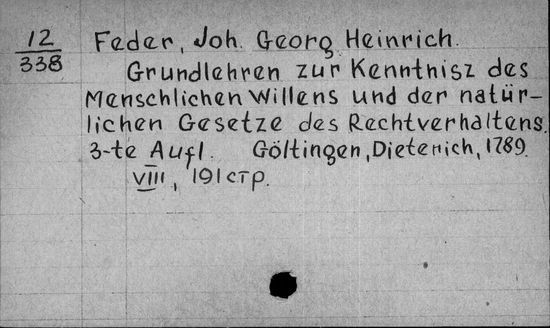 12
338
Feder, Joh. Georg Heinrich.
Grundlehren zur Kenntnisz des
Menschlichen Willens und der natür-
lichen Gesetze des Rechtverhaltens.
3-te Aufl. Göltingen, Dieterich, 1789.
VIII, 191 стр.